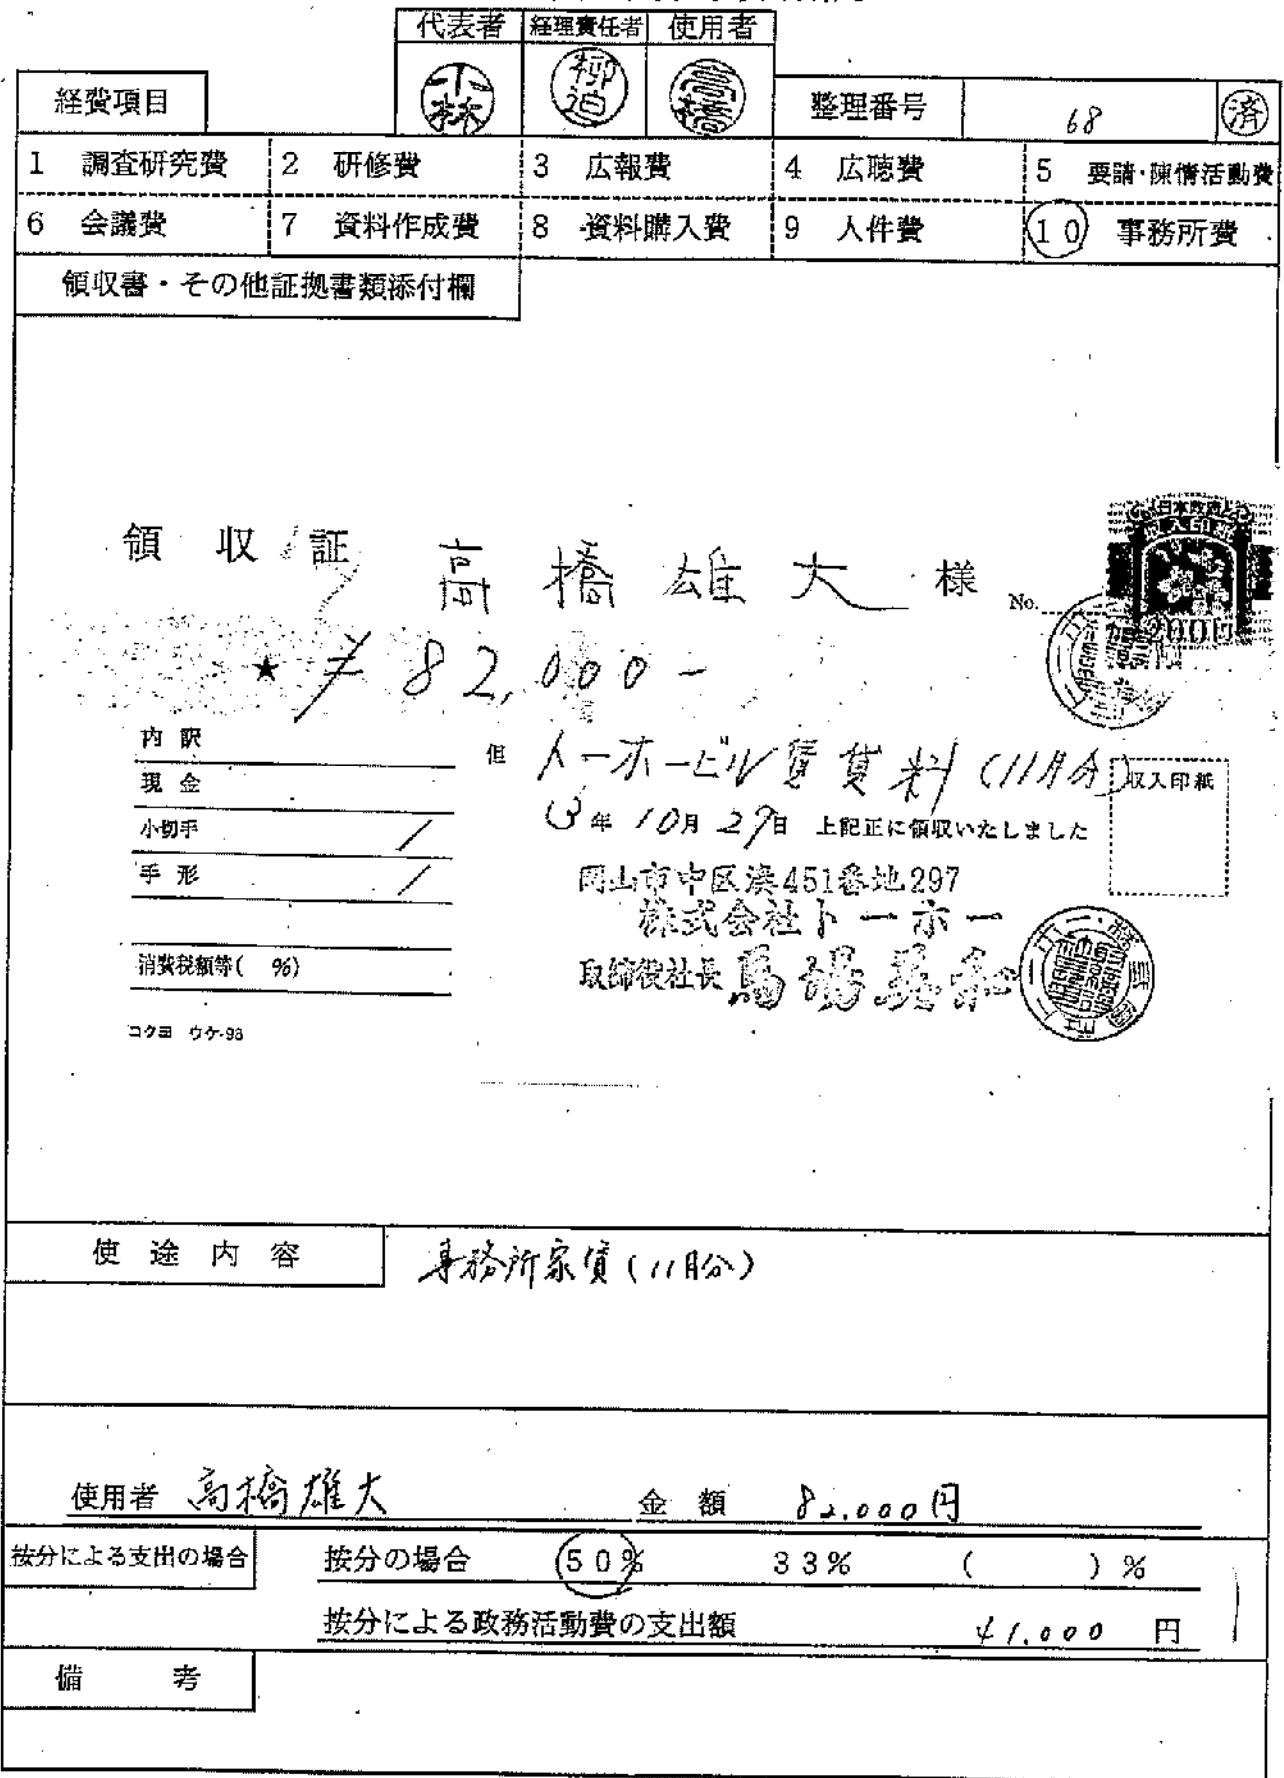 代表者 経理責任者 使用者
小林 柳迫 高橋
経費項目 整理番号 68 済
1 調査研究費 2 研修費 3 広報費 4 広聴費 5 要請・陳情活動費
6 会議費 7 資料作成費 8 資料購入費 9 人件費 10 事務所費
領収書・その他証拠書類添付欄
領収証 高橋雄大 様 No.
日本政府
収入印紙
200円
★ ¥82,000-
内訳 但 トーホービル賃貸料(11月分)
現金 収入印紙
小切手 3年10月29日 上記正に領収いたしました
手形 岡山市中区湊451番地297
株式会社トーホー
消費税額等( %) 取締役社長
コクヨ ウケ-98
使途内容 事務所家賃(11月分)
使用者 高橋雄大 金額 82,000円
按分による支出の場合 按分の場合 50% 33% ( )%
按分による政務活動費の支出額 41,000 円
備考